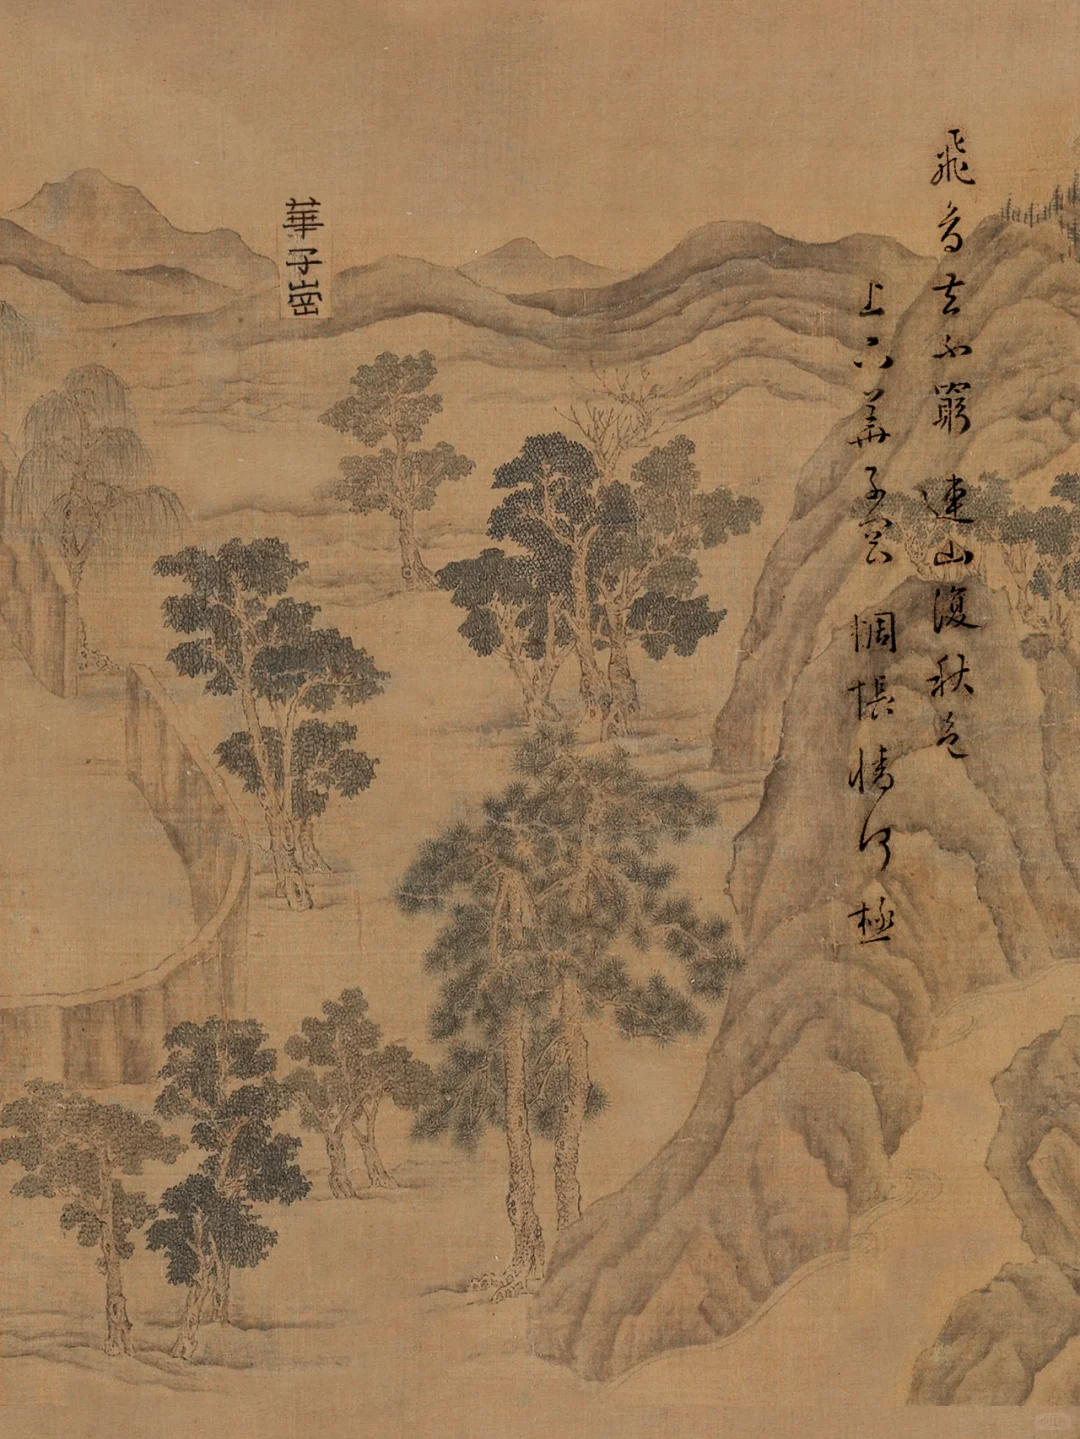 飛鳥去不窮 連山復秋色
上下華子崗 惆悵情何極
華子崗